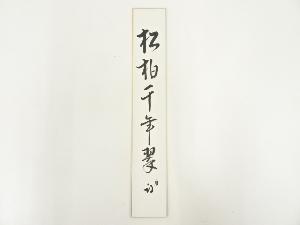 松柏千年翠